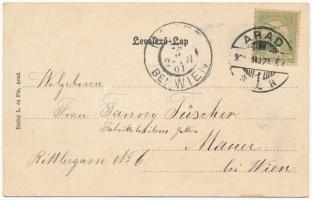 Levelező-Lap
ARAD
BEI WIEN
Wohlgeboren
Frau Fanny Tüscher
Fabriksbesitzers Gattin
Mauer
bei Wien
Rittlergasse No 6
Réthy L. és Fia, Arad.